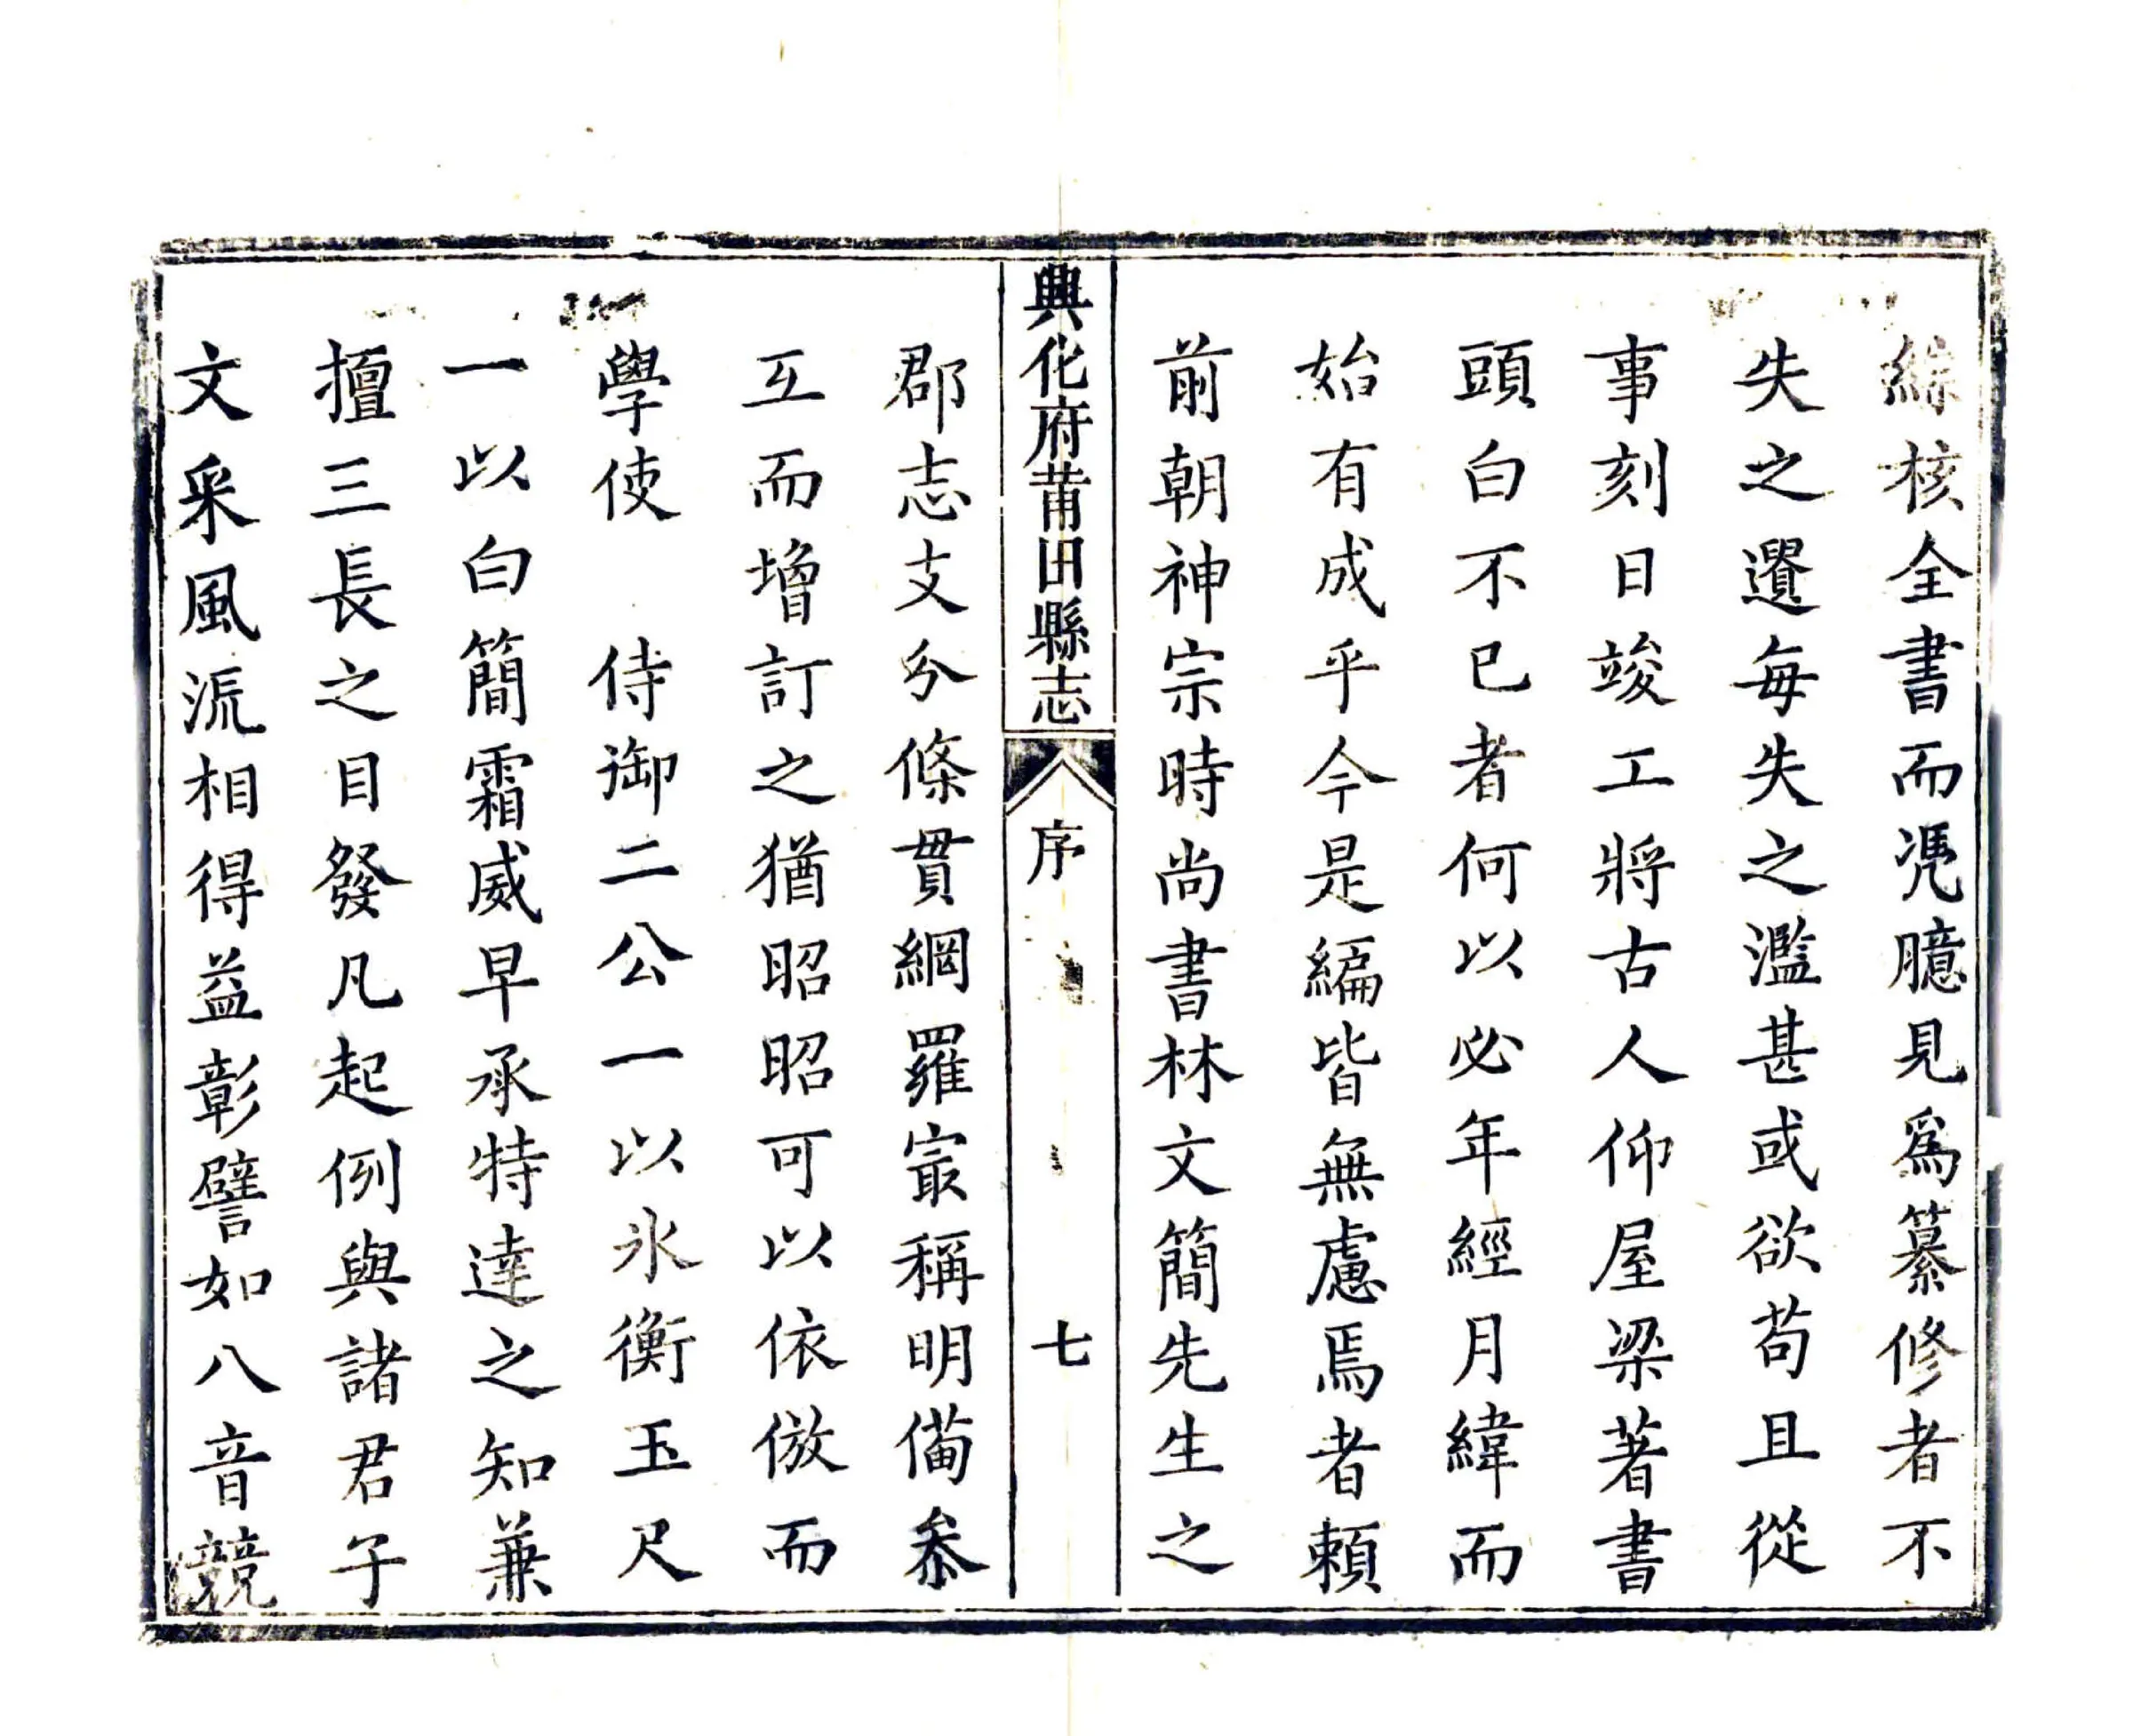 綜核全書而凴臆見爲纂修者不
失之遺每失之濫甚或欲苟且從
事刻日竣工將古人仰屋梁著書
頭白不已者何以必年經月緯而
始有成乎今是編皆無慮焉者賴
前朝神宗時尚書林文簡先生之
興化府莆田縣志
序
七
郡志支分條貫綱羅㝡稱明備叅
互而增訂之猶昭昭可以依倣而
學使 侍御二公一以氷衡玉尺
一以白簡霜威早承特達之知兼
擅三長之目發凡起例與諸君子
文采風流相得益彰譬如八音競